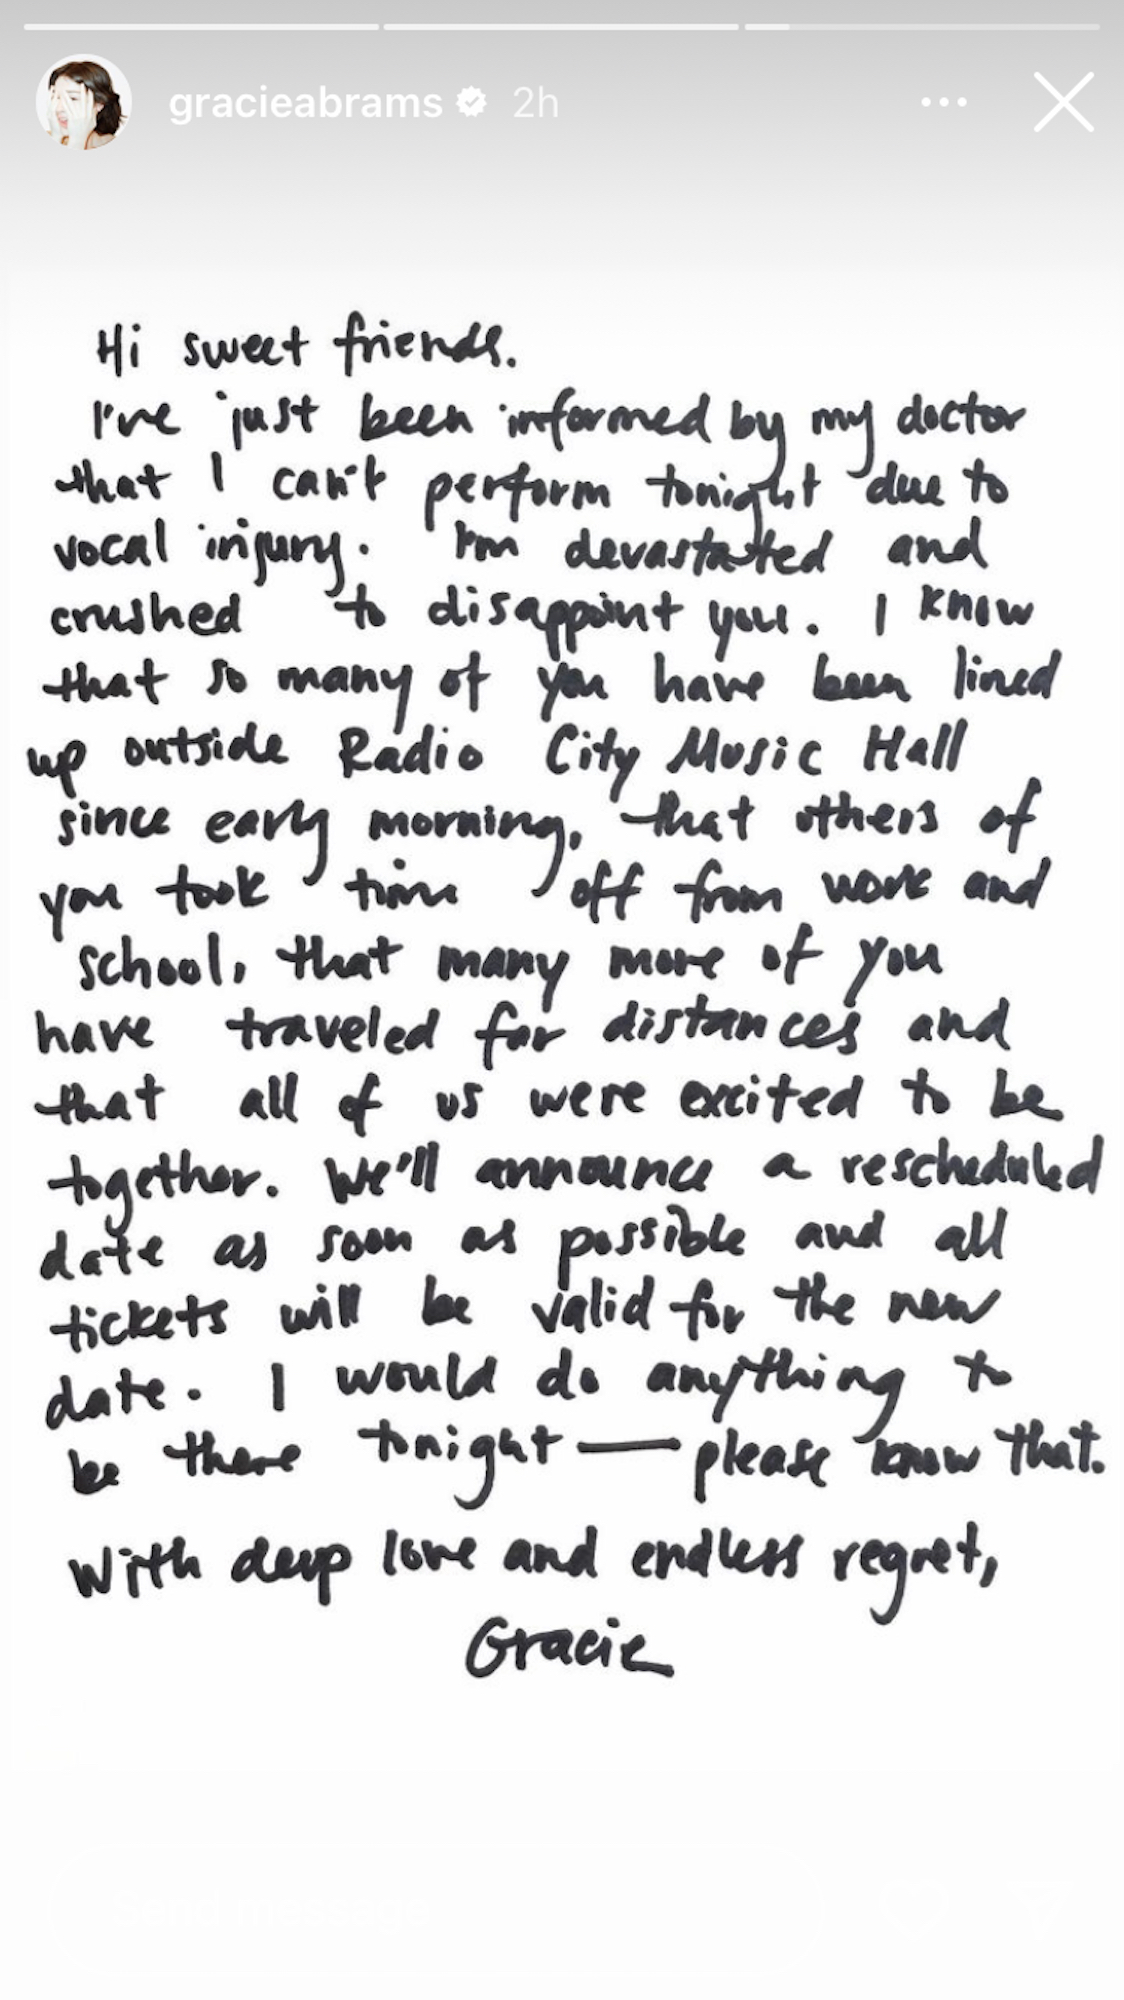 gracieabrams 2h
Hi sweet friends.
I've just been informed by my doctor
that I can't perform tonight due to
vocal injury. I'm devastated and
crushed to disappoint you. I know
that so many of you have been lined
up outside Radio City Music Hall
since early morning, that others of
you took time off from work and
school, that many more of you
have traveled far distances and
that all of us were excited to be
together. We'll announce a rescheduled
date as soon as possible and all
tickets will be valid for the new
date. I would do anything to
be there tonight — please know that.
With deep love and endless regret,
Gracie
Send message